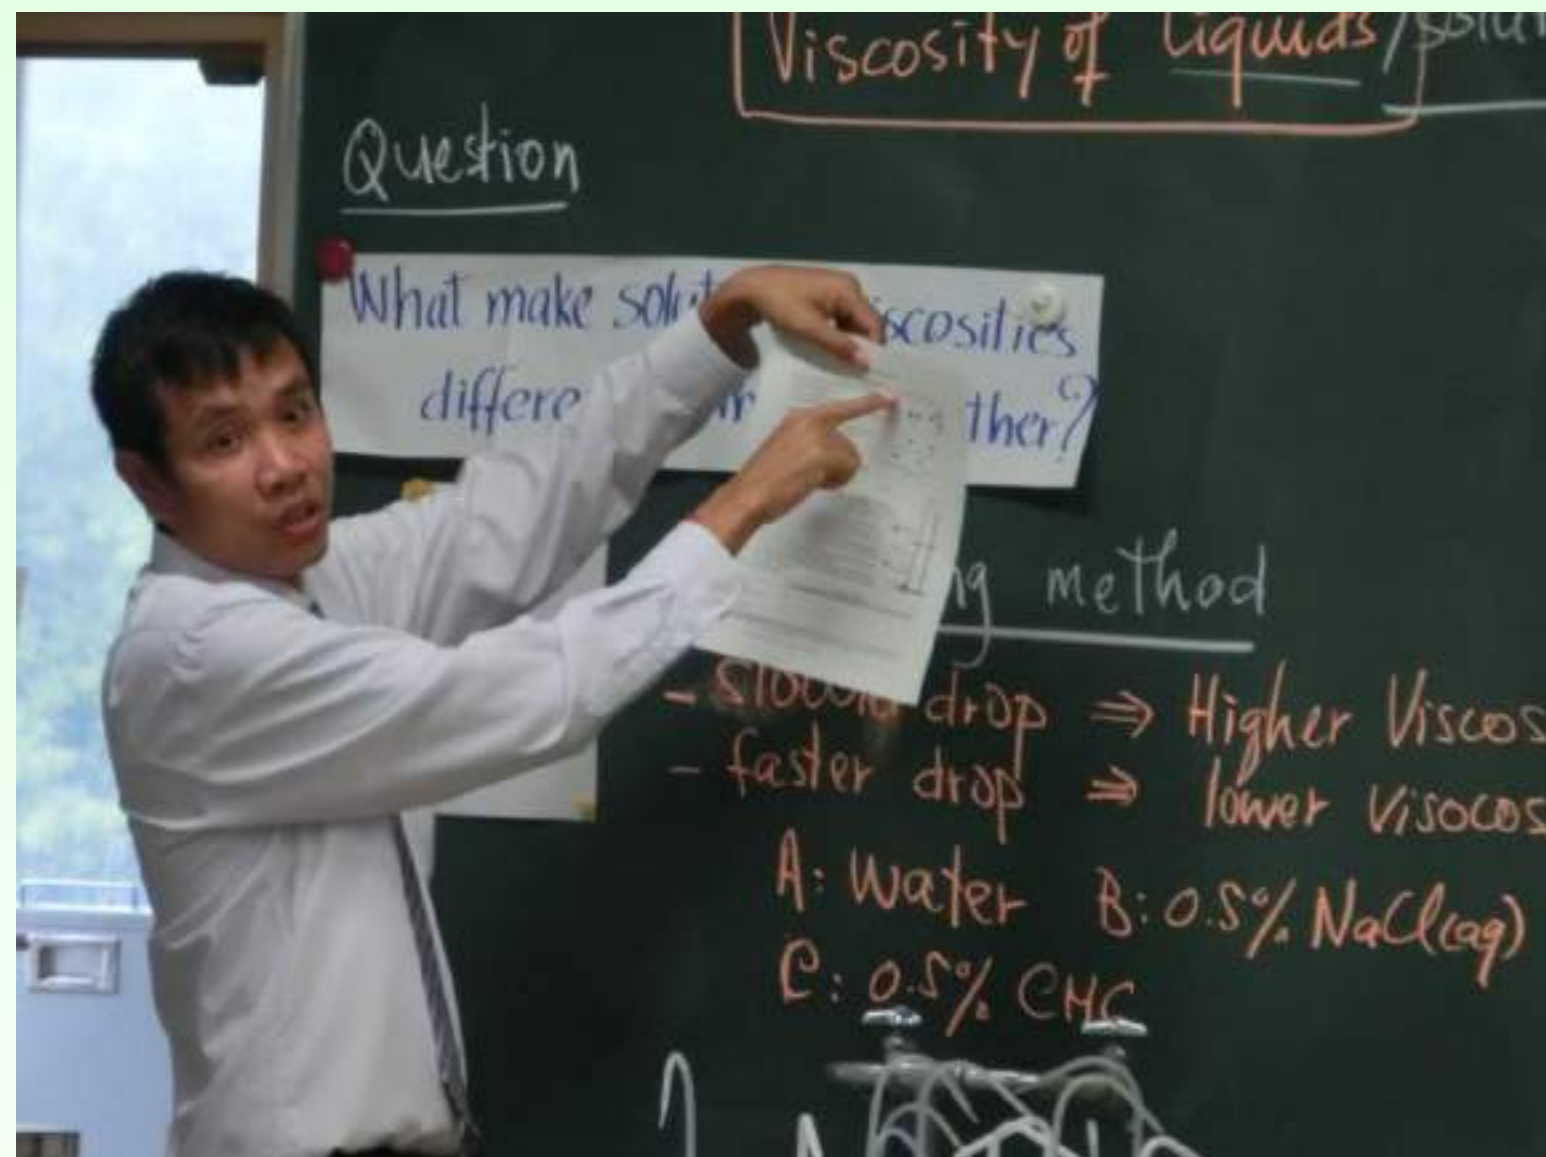 Viscosity of Liquids/solut
Question
What make solut scosities
differe ther?
ng method
- slower drop ⇒ Higher Viscos
- faster drop ⇒ lower Visocos
A: Water B: 0.5% NaCl(aq)
C: 0.5% CMC